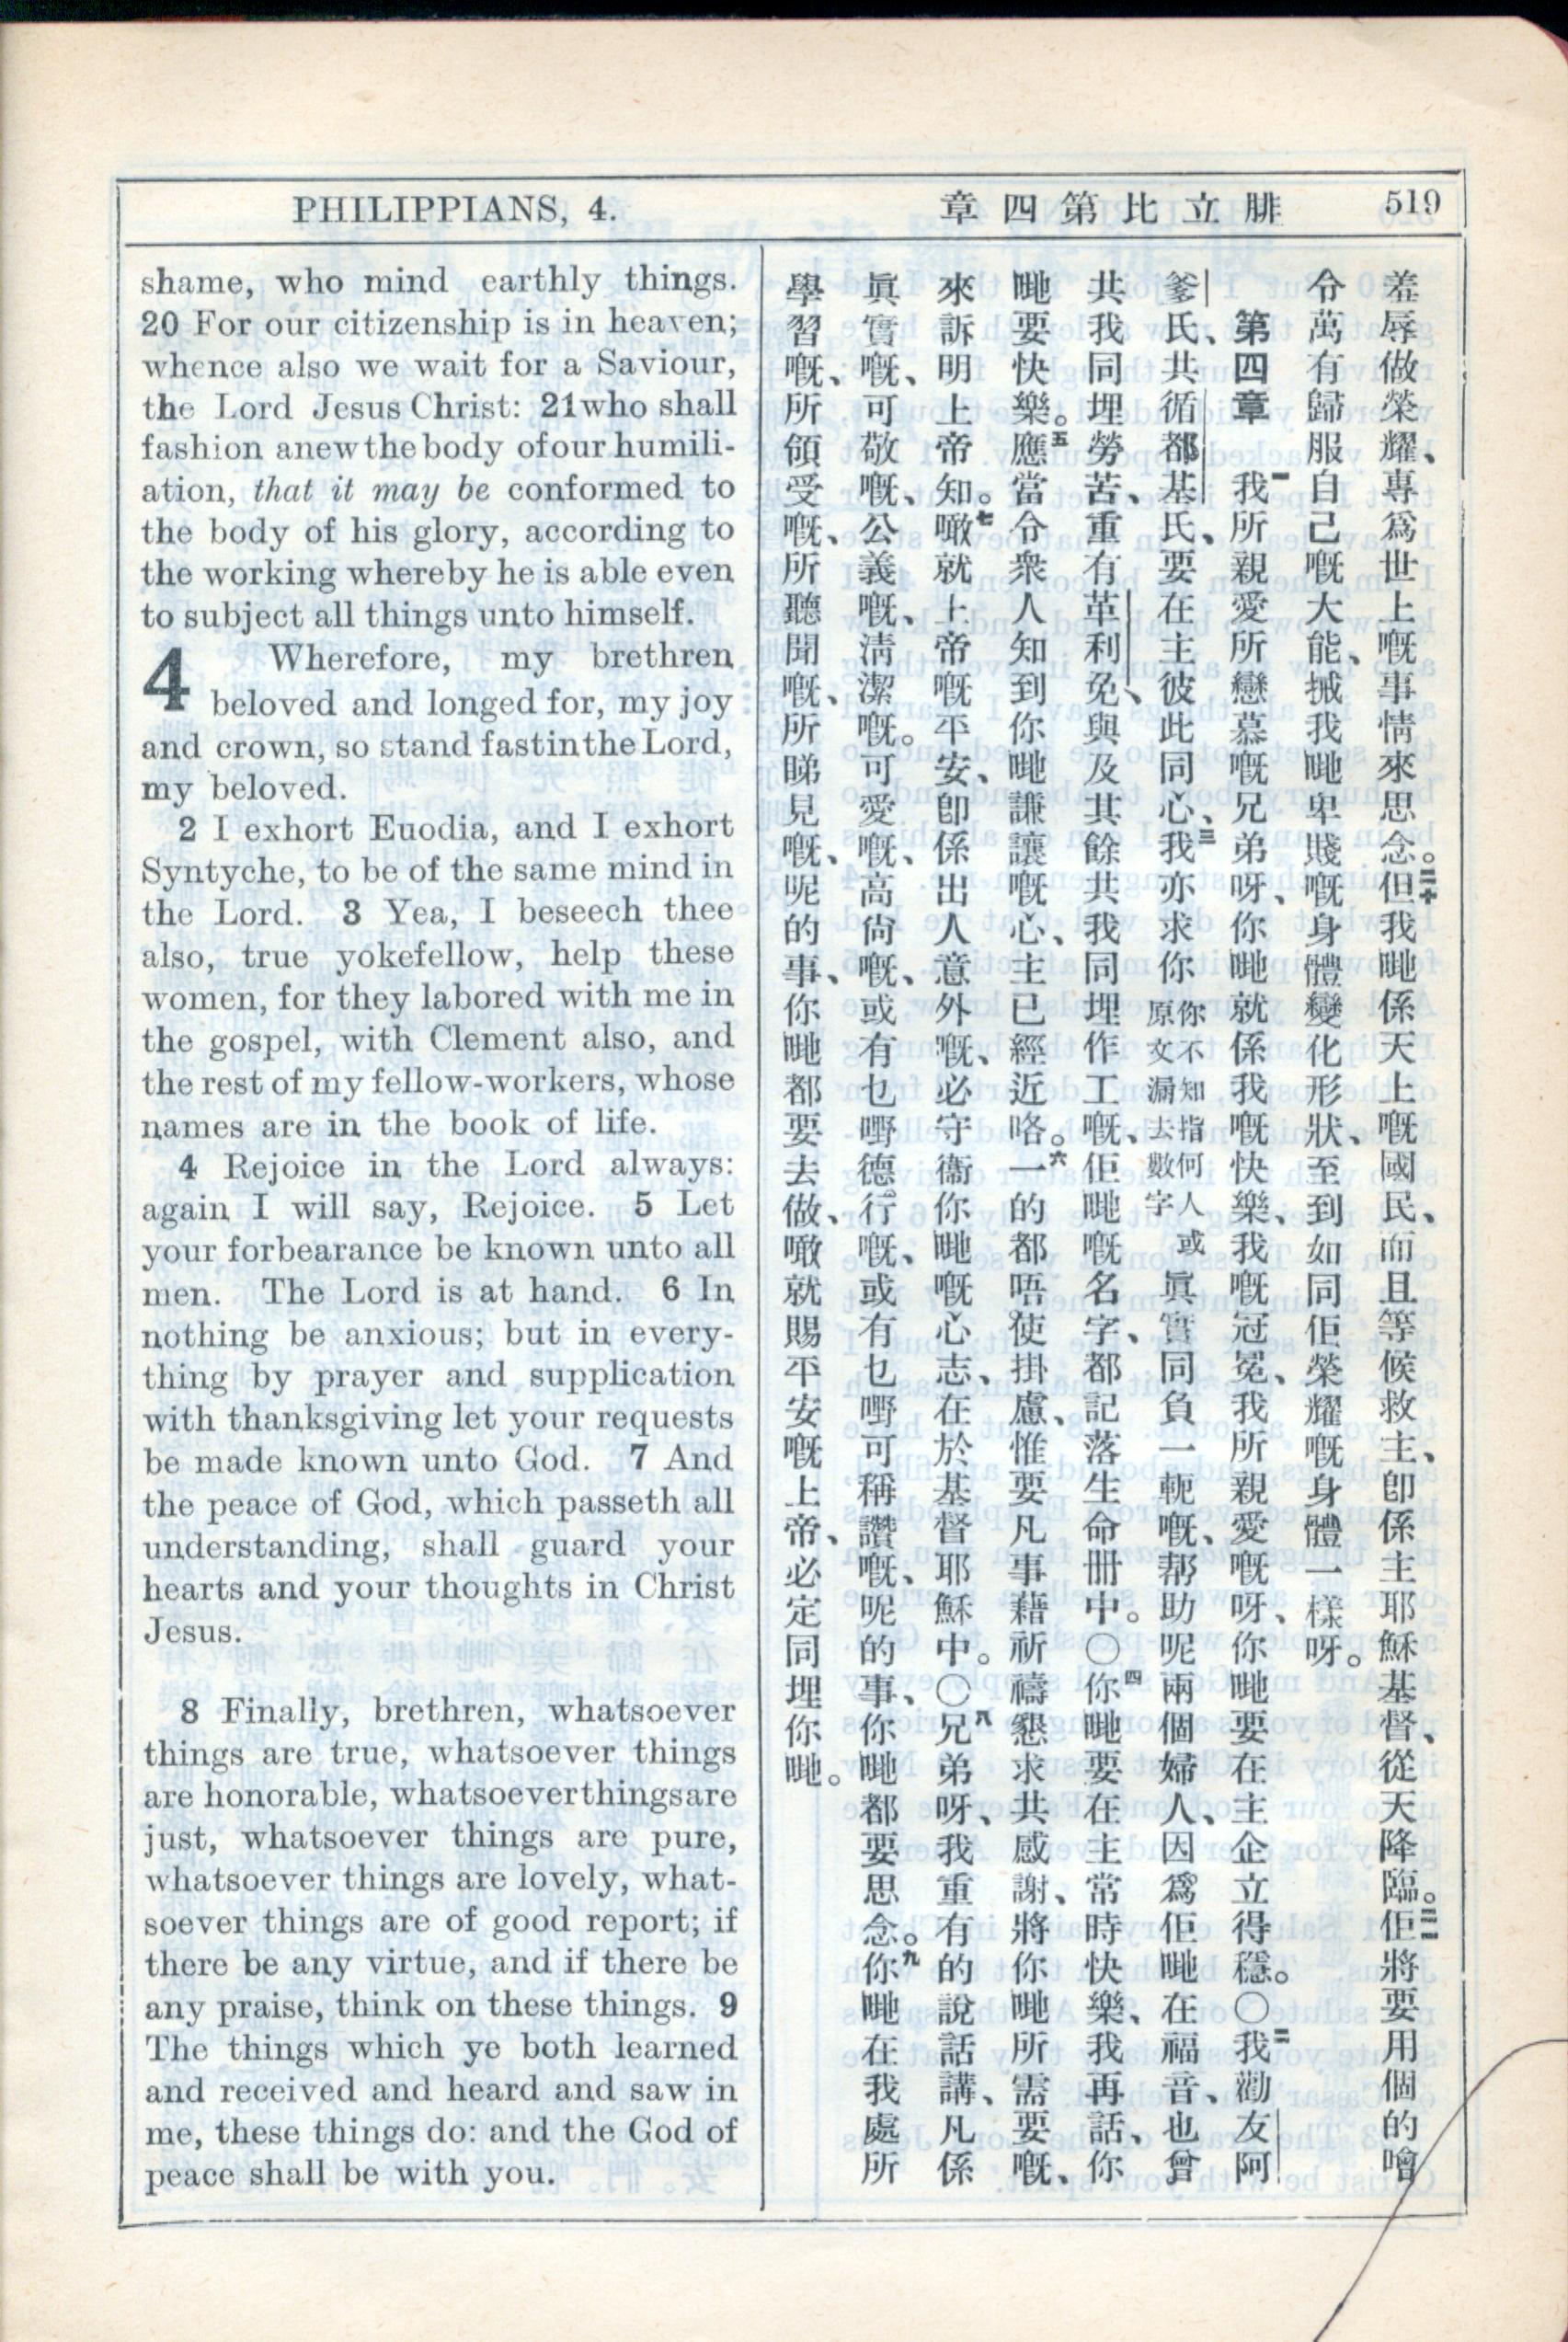 PHILIPPIANS, 4.
章四第比立腓
519
shame, who mind earthly things.
20 For our citizenship is in heaven;
whence also we wait for a Saviour,
the Lord Jesus Christ: 21 who shall
fashion anew the body of our humili-
ation, that it may be conformed to
the body of his glory, according to
the working whereby he is able even
to subject all things unto himself.
4 Wherefore, my brethren
beloved and longed for, my joy
and crown, so stand fast in the Lord,
my beloved.
2 I exhort Euodia, and I exhort
Syntyche, to be of the same mind in
the Lord. 3 Yea, I beseech thee
also, true yokefellow, help these
women, for they labored with me in
the gospel, with Clement also, and
the rest of my fellow-workers, whose
names are in the book of life.
4 Rejoice in the Lord always:
again I will say, Rejoice. 5 Let
your forbearance be known unto all
men. The Lord is at hand. 6 In
nothing be anxious; but in every-
thing by prayer and supplication
with thanksgiving let your requests
be made known unto God. 7 And
the peace of God, which passeth all
understanding, shall guard your
hearts and your thoughts in Christ
Jesus.
8 Finally, brethren, whatsoever
things are true, whatsoever things
are honorable, whatsoever things are
just, whatsoever things are pure,
whatsoever things are lovely, what-
soever things are of good report; if
there be any virtue, and if there be
any praise, think on these things. 9
The things which ye both learned
and received and heard and saw in
me, these things do: and the God of
peace shall be with you.
羞辱做榮耀、專爲世上嘅事情來思念。二十但我哋係天上嘅國民、而且等候救主、卽係主耶穌基督、從天降臨。二一佢將要用個的噲
令萬有歸服自己嘅大能、搣我哋卑賤嘅身體變化形狀、至到如同佢榮耀嘅身體一樣呀。
第四章 一我所親愛所戀慕嘅兄弟呀、你哋就係我嘅快樂、我嘅冠冕、我所親愛嘅呀、你哋要在主企立得穩。〇二我勸友阿
爹氏、共循都基氏、要在主彼此同心、三我亦求你你不知指何人或原文漏去數字眞實同負一軛嘅、帮助呢兩個婦人、因爲佢哋在福音、也曾
共我同埋勞苦、重有革利免、與及其餘共我同埋作工嘅、佢哋嘅名字、都記落生命冊中。〇四你哋要在主常時快樂、我再話、你
哋要快樂。五應當令衆人知到你哋謙讓嘅心、主已經近咯。六一的都唔使掛慮、惟要凡事藉祈禱懇求共感謝、將你哋所需要嘅、
來訴明上帝知。七噉就上帝嘅平安、卽係出人意外嘅、必守衞你哋嘅心志、在於基督耶穌中。〇八兄弟呀、我重有的說話講、凡係
眞實嘅、可敬嘅、公義嘅、淸潔嘅。可愛嘅、高尙嘅、或有乜嘢德行嘅、或有乜嘢可稱讚嘅、呢的事、你哋都要思念。九你哋在我處所
學習嘅、所領受嘅、所聽聞嘅、所睇見嘅、呢的事、你哋都要去做、噉就賜平安嘅上帝、必定同埋你哋。